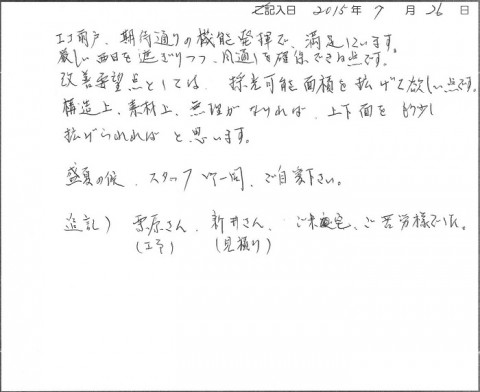 ご記入日 2015年 7 月 26 日
エコ雨戸、期待通りの機能発揮で、満足しています。
厳しい西日を遮ぎりつつ、風通しを確保できる点です。
改善要望点としては、採光可能面積を拡げて欲しい点です。
構造上、素材上、無理がなければ、上下面を もう少し
拡げられれば と思います。
盛夏の候、スタッフ 一同、ご自愛下さい。
追記) 栗原さん、新井さん、ご来宅、ご苦労様でした。
(工事) (見積り)